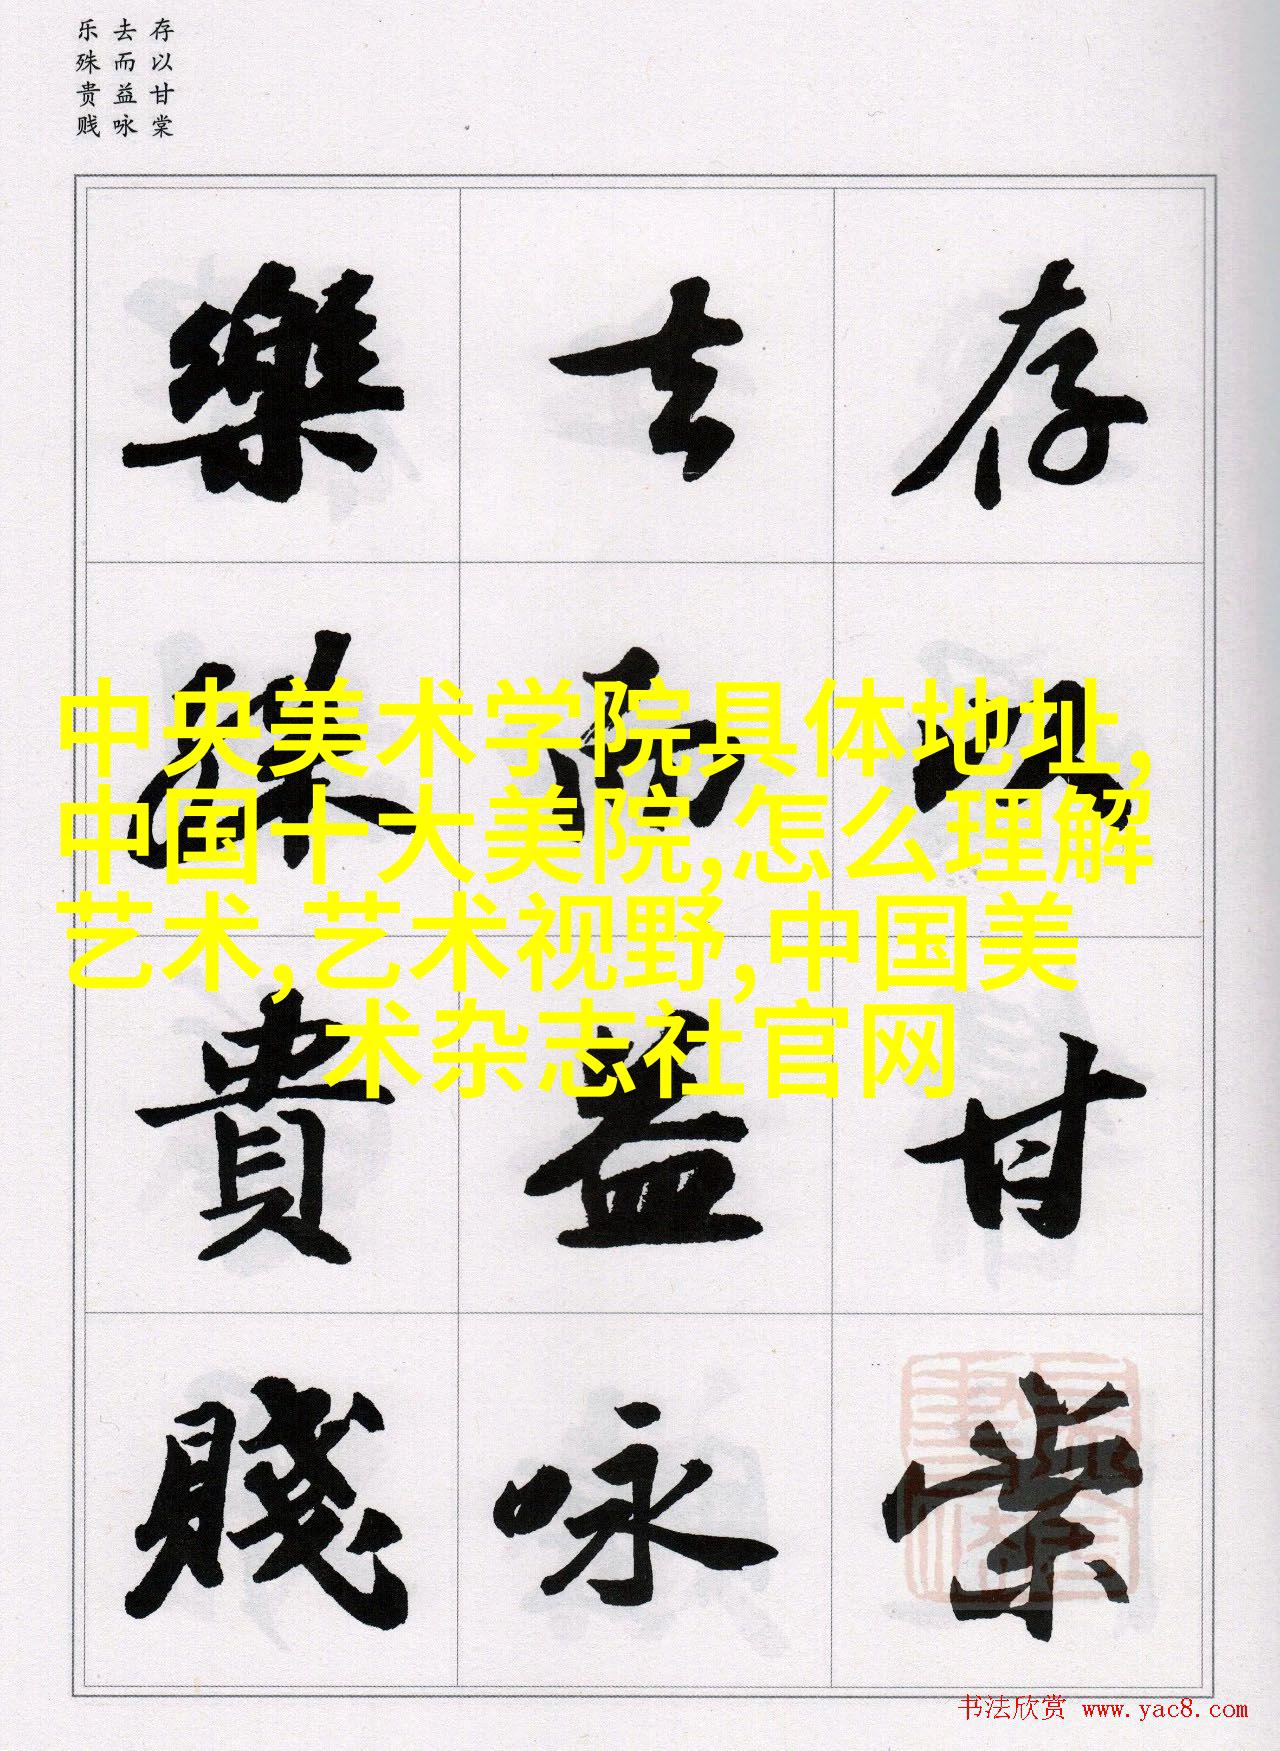 存以甘棠
去而益咏
乐殊贵贱
存以甘棠
去而益咏
樂殊貴賤
中央美术学院具体地址,
中国十大美院,怎么理解
艺术,艺术视野,中国美
术杂志社官网
书法欣赏 www.yac8.com